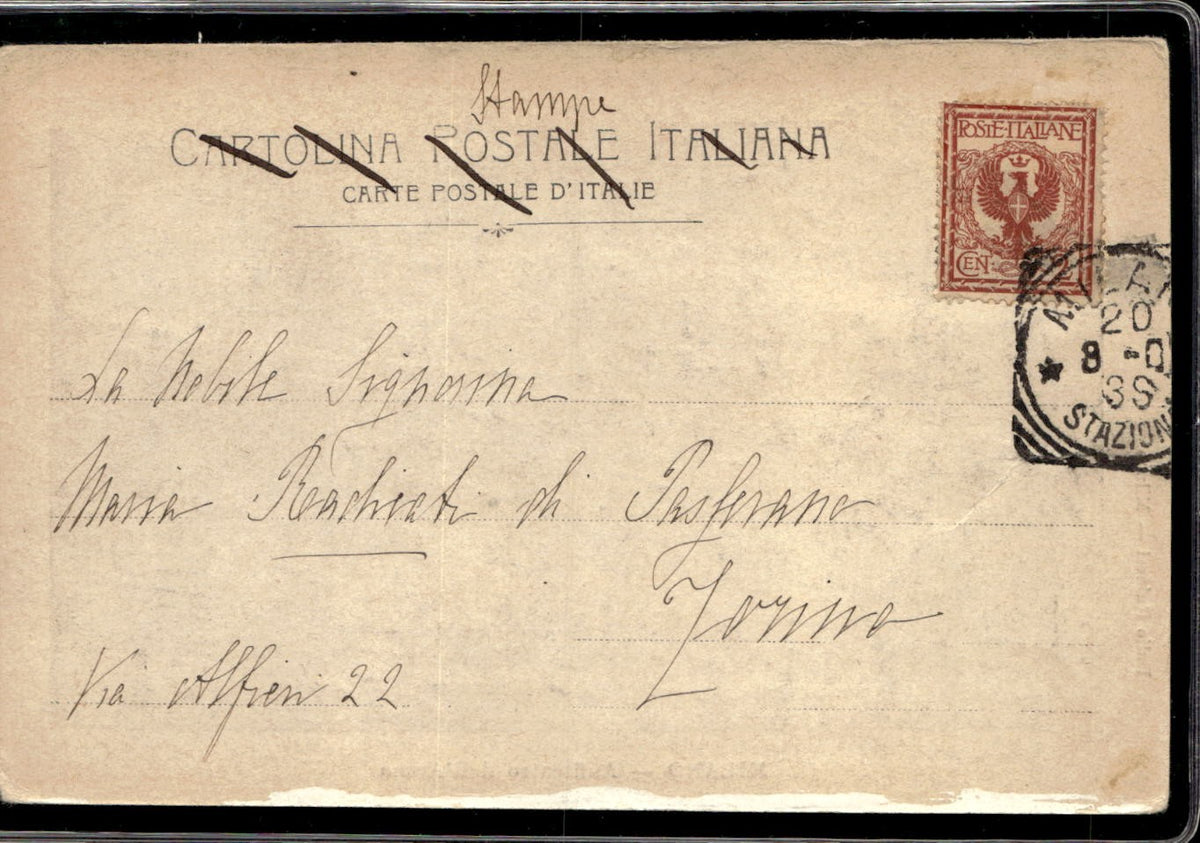 Stampe
CARTOLINA POSTALE ITALIANA
CARTE POSTALE D'ITALIE
POSTE·ITALIANE
CEN. 2
MILAN
20
8
STAZION
La Nobile Signorina
Maria Radicati di Passerano
Torino
Via Alfieri 22